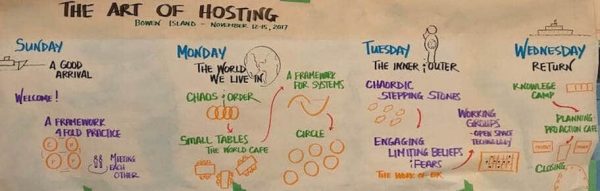 THE ART OF HOSTING
BOWEN ISLAND - NOVEMBER 12-15, 2017
SUNDAY
A GOOD
ARRIVAL
WELCOME!
A FRAMEWORK
4 FOLD PRACTICE
MEETING
EACH
OTHER
MONDAY
THE WORLD
WE LIVE IN
CHAOS & ORDER
SMALL TABLES
THE WORLD CAFE
A FRAMEWORK
FOR SYSTEMS
CIRCLE
TUESDAY
THE INNER & OUTER
CHAORDIC
STEPPING STONES
ENGAGING
LIMITING BELIEFS
& FEARS
THE WORK OF BK
WORKING
GROUPS
- OPEN SPACE
TECHNOLOGY
WEDNESDAY
RETURN
KNOWLEGE
CAMP
PLANNING
PRO ACTION CAFE
CLOSING